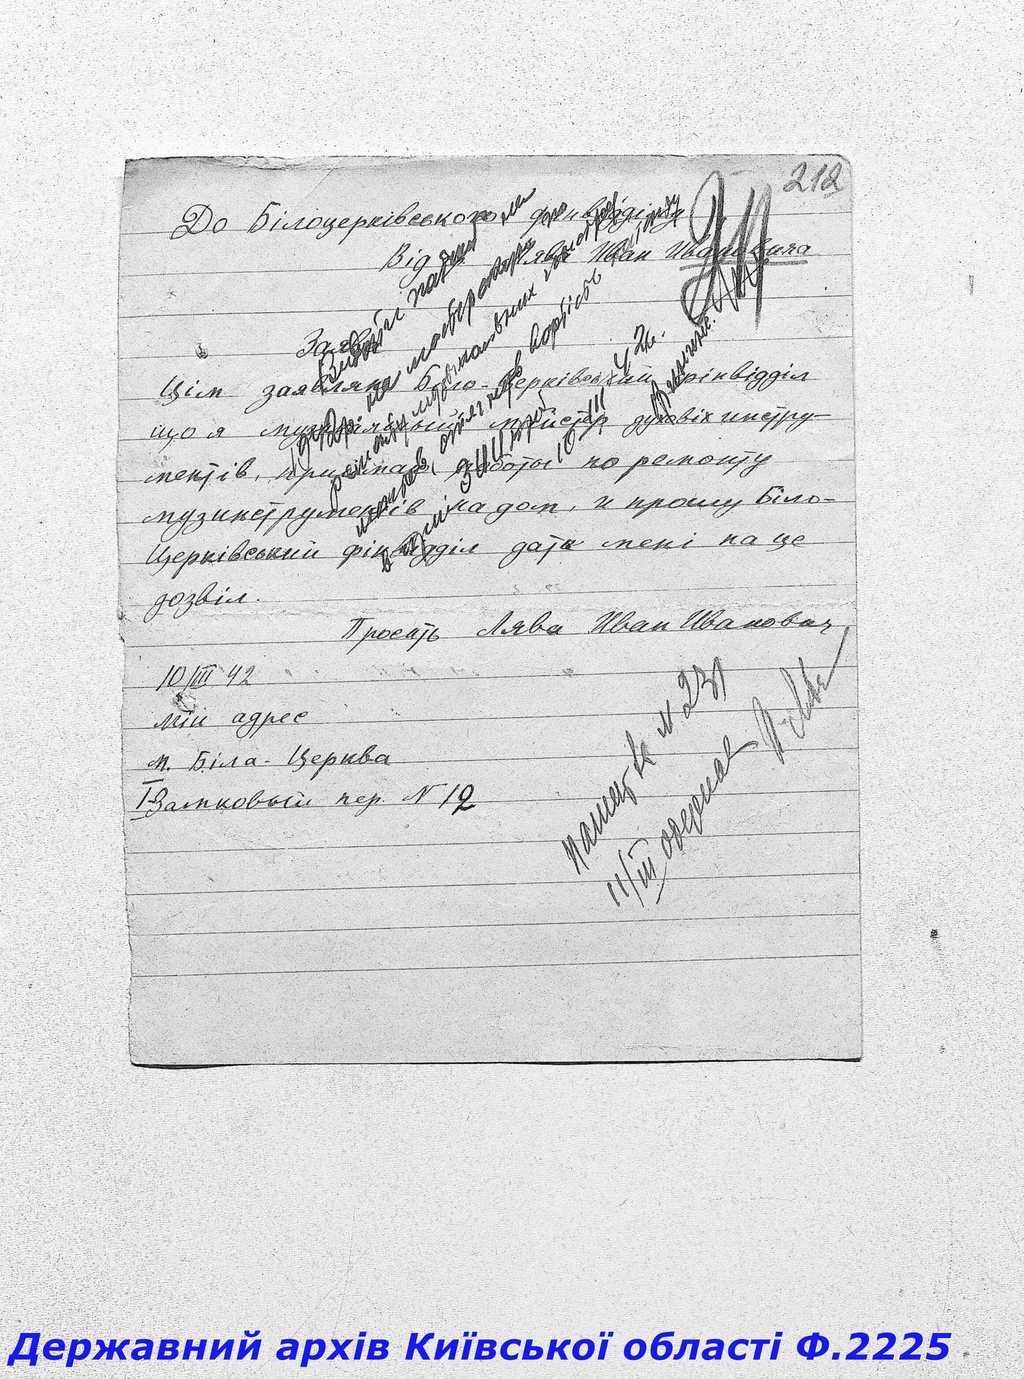 212
До Білоцерківського фінвідділу
Від Лява Иван Ивановича
Заява
Цім заявляю Біло-Церківський фінвідділ
що я музикальный майстер духовіх инстру-
ментів, принимаю работы по ремонту
музинструментів на дом, и прошу Біло-
Церківський фінвідділ дать мені на це
дозвіл.
Просить Лява Иван Иванович
10/III 42
мій адрес
м. Біла-Церква
I Замковый пер. N 12
Видати патент на
ремонту музикальних
вартість
10 III 42р.
Патент N 231
11/III одержав